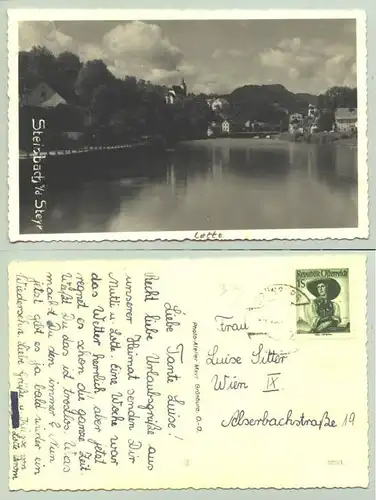 Steinbach a/d Steyr
Lotte
Liebe Tante Luise!
Recht liebe Urlaubsgrüße aus
unserer Heimat senden Dir
Mutti u. Lotte. Eine Woche war
das Wetter herrlich, aber jetzt
regnet es schon die ganze Zeit.
Weißt Du das ist trostlos. Was
machst Du den immer? Nun
jetzt gibt es ja bald wieder ein
Wiedersehn. Liebe Grüße u. Küsse von
Lotte
Photo-Atelier Mayr
Republik Österreich
1 S
Frau
Luise Sitter
Wien IX
Alserbachstraße 19